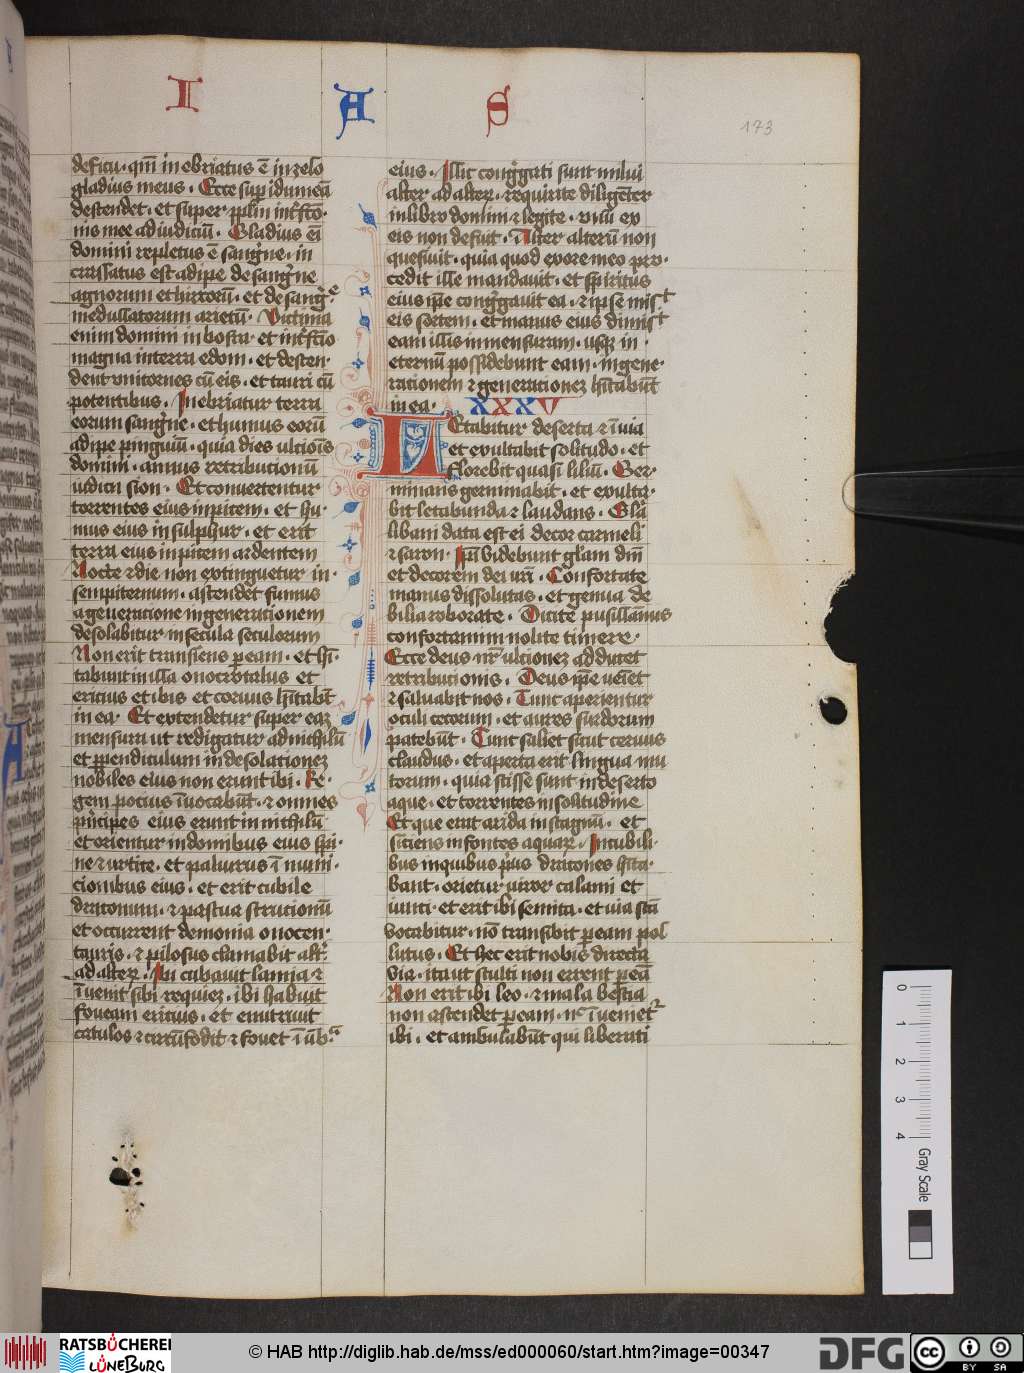 I A S
173
deficu. qm̄ inebriatus ē inzelo
gladius meus. Ecce sup idumeā
descendet. et super pplm̄ inťfcō
nis mee adiudiciū. Gladius eī
domini repletus ē sangͥne. in
crassatus est adipe de sangͥne
agnorum et hircorū. et de sangͥe
medullatorum arietū. Victima
enim domini in bosra. et inťfcō
magna interra edom. et descen
dent vnicornes cū eis. et tauri cū
potentibus. Inebriatur terra
eorum sangͥne. et humus eorū
adipe pinguiū. quia dies ulciōis
domini. annus retributionū
iudicii sion. Et conuertentur
torrentes eius inpicem. et hu
mus eius insulphur. et erit
terra eius inpicem ardentem
Nocte ⁊ die non extinguetur in
sempiternum. ascendet fumus
a generacione ingenerationem
desolabitur in secula seculorum
Non erit transiens p eam. et hī
tabunt in illa onocrotalus et
ericius et ibis et coruus hītabūt
in ea. Et extendetur super eaz
mensura ut redigatur adnichilū
et ppendiculum in desolationez
nobiles eius non erunt ibi. Re
gem pocius īuocabūt. ⁊ omnes
pͥncipes eius erunt in nichilū
et orientur in domibus eius spi
ne ⁊ urtice. et paliurus ī muni
cionibus eius. et erit cubile
draconum. ⁊ pascua strucionū
et occurrent demonia onocen
tauris. ⁊ pilosus clamabit altͥ
ad alter. Ibi cubauit lamia ⁊
īuenit sibi requiez. ibi habuit
foueam ericius. et enutriuit
catulos ⁊ circūfodit ⁊ fouet ī ūbᵃ
eius. Illic congͥgati sunt milui
alter ad alter. requirite diligēter
inlibro domini ⁊ legite. vnū ex
eis non defuit. Alter alterū non
quesiuit. quia quod ex ore meo pro
cedit ille mandauit. et spiritus
eius ipe congͥgauit ea. ⁊ ipse misͭ
eis sortem. et manus eius diuisͭ
eam illis inmensuram. usqz in
eternū possidebunt eam. ingene
rationem ⁊ generationez hītabūt
in ea. XXXV
Letabitur deserta ⁊ īuia
et exultabit solitudo. et
florebit quasi liliū. Ger
minans germinabit. et exulta
bit letabunda ⁊ laudans. Glā
libani data est ei decor carmeli
⁊ saron. Ipi videbunt glam dnī
et decorem dei nrī. Confortate
manus dissolutas. et genua de
bilia roborate. Dicite pusillanimus
confortamini nolite timere.
Ecce deus nr̄ ulcionez adducet
retributionis. Deus ipe ueīet
⁊ saluabit nos. Tunc aperientur
oculi cecorum. et aures surdorum
patebūt. Tunc saliet sicut ceruus
claudus. et aperta erit lingua mu
torum. quia scisse sunt indeserto
aque. et torrentes insolitudine
Et que erat arida in stagnū. et
siciens infontes aquarz. Incubili
bus inquibus pͥus dracones hīta
bant. orietur uiror calami et
iunci. et erit ibi semita. et uia scā
vocabitur. nō transibit p eam pol
lutus. Et hec erit nobis directa
via. ita ut stulti non errent p eā
Non erit ibi leo. ⁊ mala bestia
non ascendet p eam. nc̄ īuenietᷣ
ibi. et ambulabūt qui liberati
0 1 2 3 4
Gray Scale
RATSBÜCHEREI
LÜNEBURG
© HAB http://diglib.hab.de/mss/ed000060/start.htm?image=00347
DFG
cc BY SA